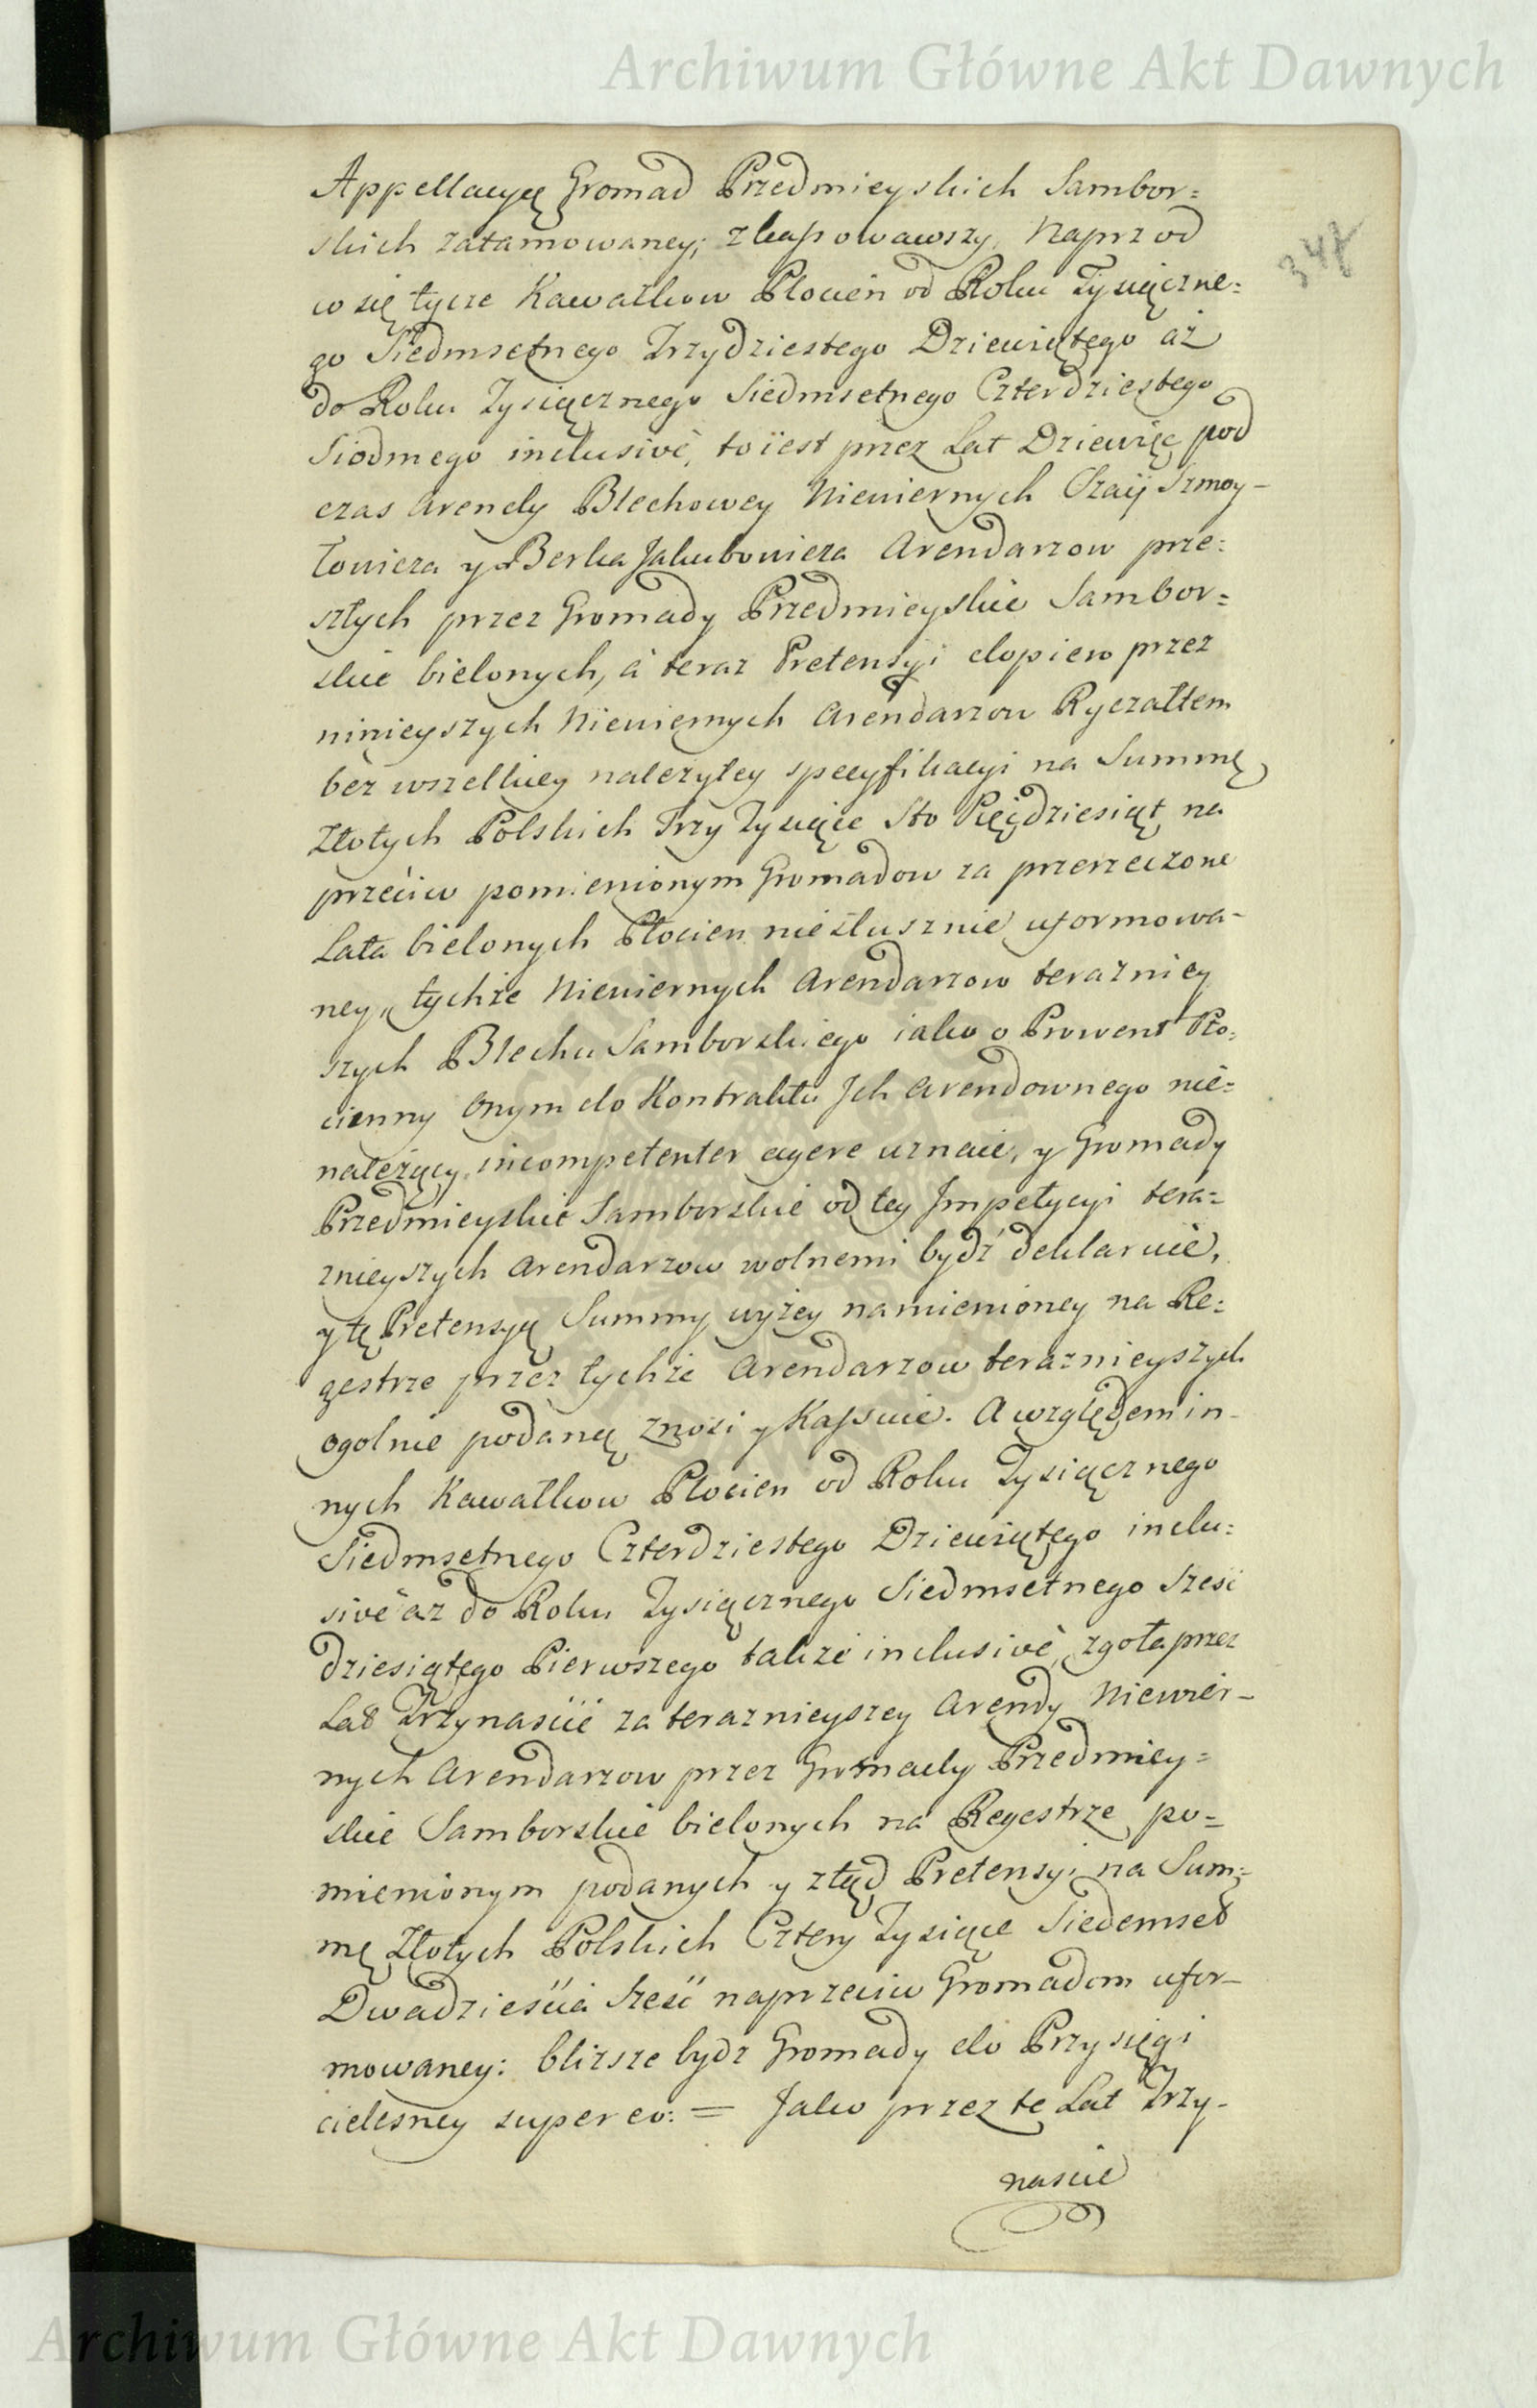 Archiwum Główne Akt Dawnych
Appellacyę Gromad Przedmieyskich Sambor=
skich zatamowaney; zkassowawszy, Naprzod
co się tycze Kawałkow Płocien od Roku Tysiączne=
go Siedmsetnego Trzydziestego Dziewiątego aż
do Roku Tysiącznego Siedmsetnego Czterdziestego
Siodmego inclusivè, to iest przez Lat Dziewięc pod
czas Arendy Blechowey Niewiernych Szmoy-
łowicza y Berka Jakubowicza Arendarzow prze=
szłych przez Gromady Przedmieyskie Sambor=
skie bielonych, à teraz Pretensyi dopiero przez
ninieyszych Niewiernych Arendarzow Ryczałtem
bez wszelkiey należytey specyfikacyi na Summę
Złotych Polskich Trzy Tysiące Sto Pięćdziesiąt na
przeciw pomienionym Gromadow za przerzeczone
Lata bielonych Płocien niesłusznie uformowa-
ney, tychże Niewiernych Arendarzow terazniey
szych Blechu Samborskiego iako o Prowent Pło=
cienny Onym do Kontraktu Jch Arendownego nie=
należący, incompetenter agere uznaie, y Gromady
Przedmieyskie Samborskie od tey Jmpetycyi tera=
znieyszych Arendarzow wolnemi bydź deklaruie,
y tę Pretensyę Summy wyżey namienioney na Re=
gestrze przez tychże Arendarzow teraznieyszych
ogolnie podaną znosi y Kassuie. A względem in-
nych Kawałkow Płocien od Roku Tysiącznego
Siedmsetnego Czterdziestego Dziewiątego inclu=
sivè aż do Roku Tysiącznego Siedmsetnego Sześć
dziesiątego Pierwszego także inclusivè, zgoła przez
Lat Trzynaście za teraznieyszey Arendy Niewier-
nych Arendarzow przez Gromady Przedmiey=
skie Samborskie bielonych na Regestrze po=
mienionym podanych y ztąd Pretensyi na Sum=
mę Złotych Polskich Cztery Tysiące Siedemset
Dwadzieścia Sześć naprzeciw Gromadom ufor-
mowaney: bliższe bydz Gromady do Przysięgi
cielesney super eo: = Jako przez te Lat Trzy-
naście
Archiwum Główne Akt Dawnych